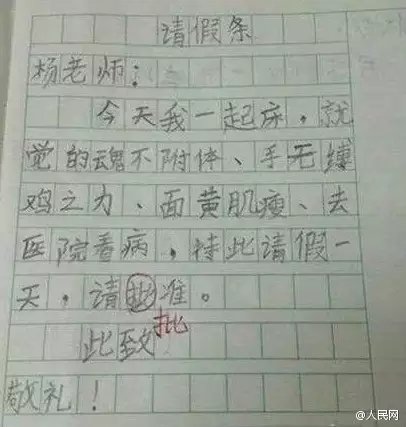 请假条
杨老师:
今天我一起床，就
觉的魂不附体、手无缚
鸡之力、面黄肌瘦、去
医院看病，特此请假一
天，请批准。
批
此致
敬礼！
@人民网